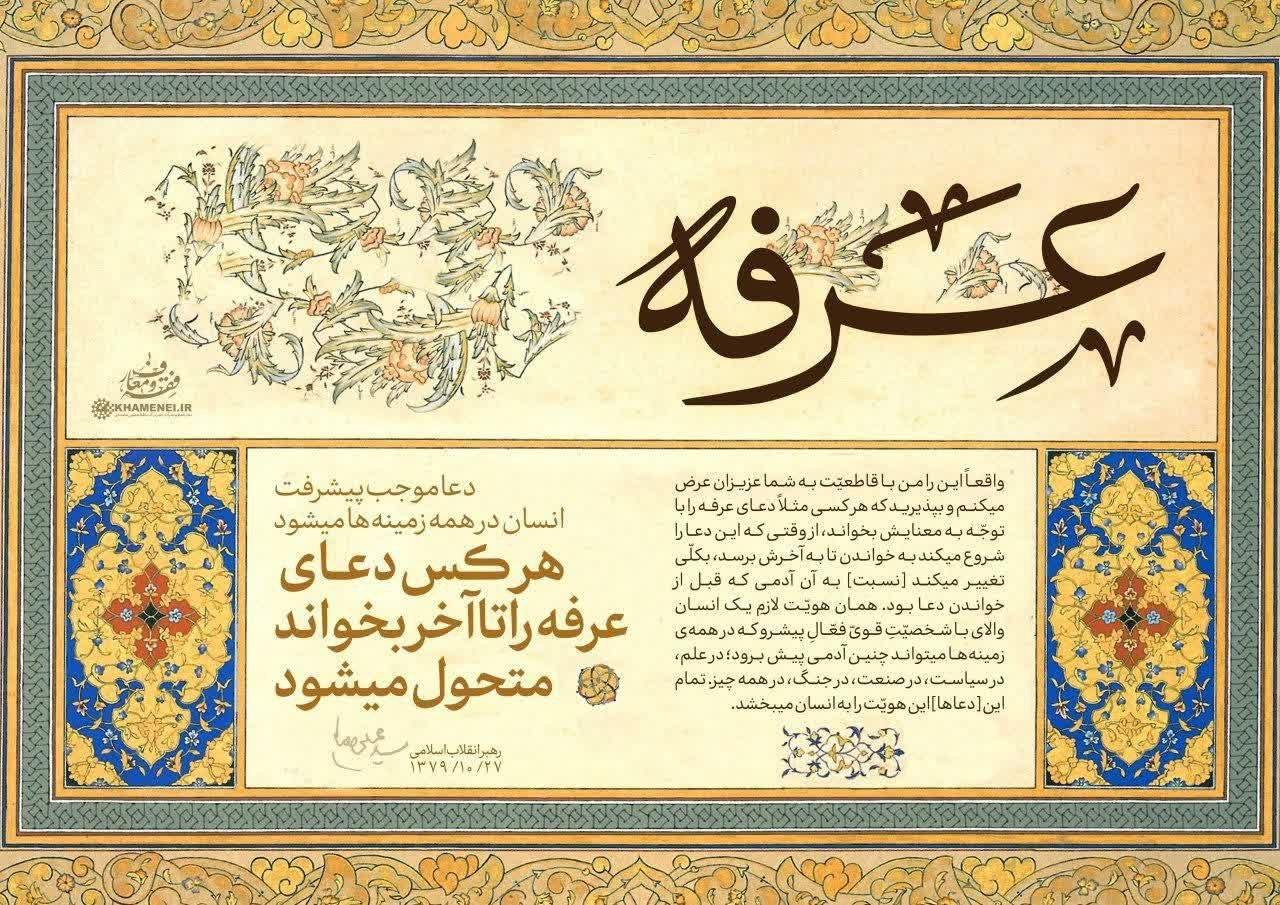 عرفه
فقه و معارف
KHAMENEI.IR
واقعاً این را من با قاطعیّت به شما عزیزان عرض
میکنم و بپذیرید که هر کسی مثلاً دعای عرفه را با
توجّه به معنایش بخواند، از وقتی که این دعا را
شروع میکند به خواندن تا به آخرش برسد، بکلّی
تغییر میکند [نسبت] به آن آدمی که قبل از
خواندن دعا بود. همان هویّت لازم یک انسان
والای با شخصیّتِ قویّ فعّالِ پیشرو که در همه‌ی
زمینه‌ها میتواند چنین آدمی پیش برود؛ در علم،
در سیاست، در صنعت، در جنگ، در همه چیز. تمام
این [دعاها] این هویّت را به انسان میبخشد.
دعا موجب پیشرفت
انسان در همه زمینه‌ها میشود
هر کس دعای
عرفه را تا آخر بخواند
متحول میشود
رهبر انقلاب اسلامی
۱۳۷۹/۱۰/۲۷